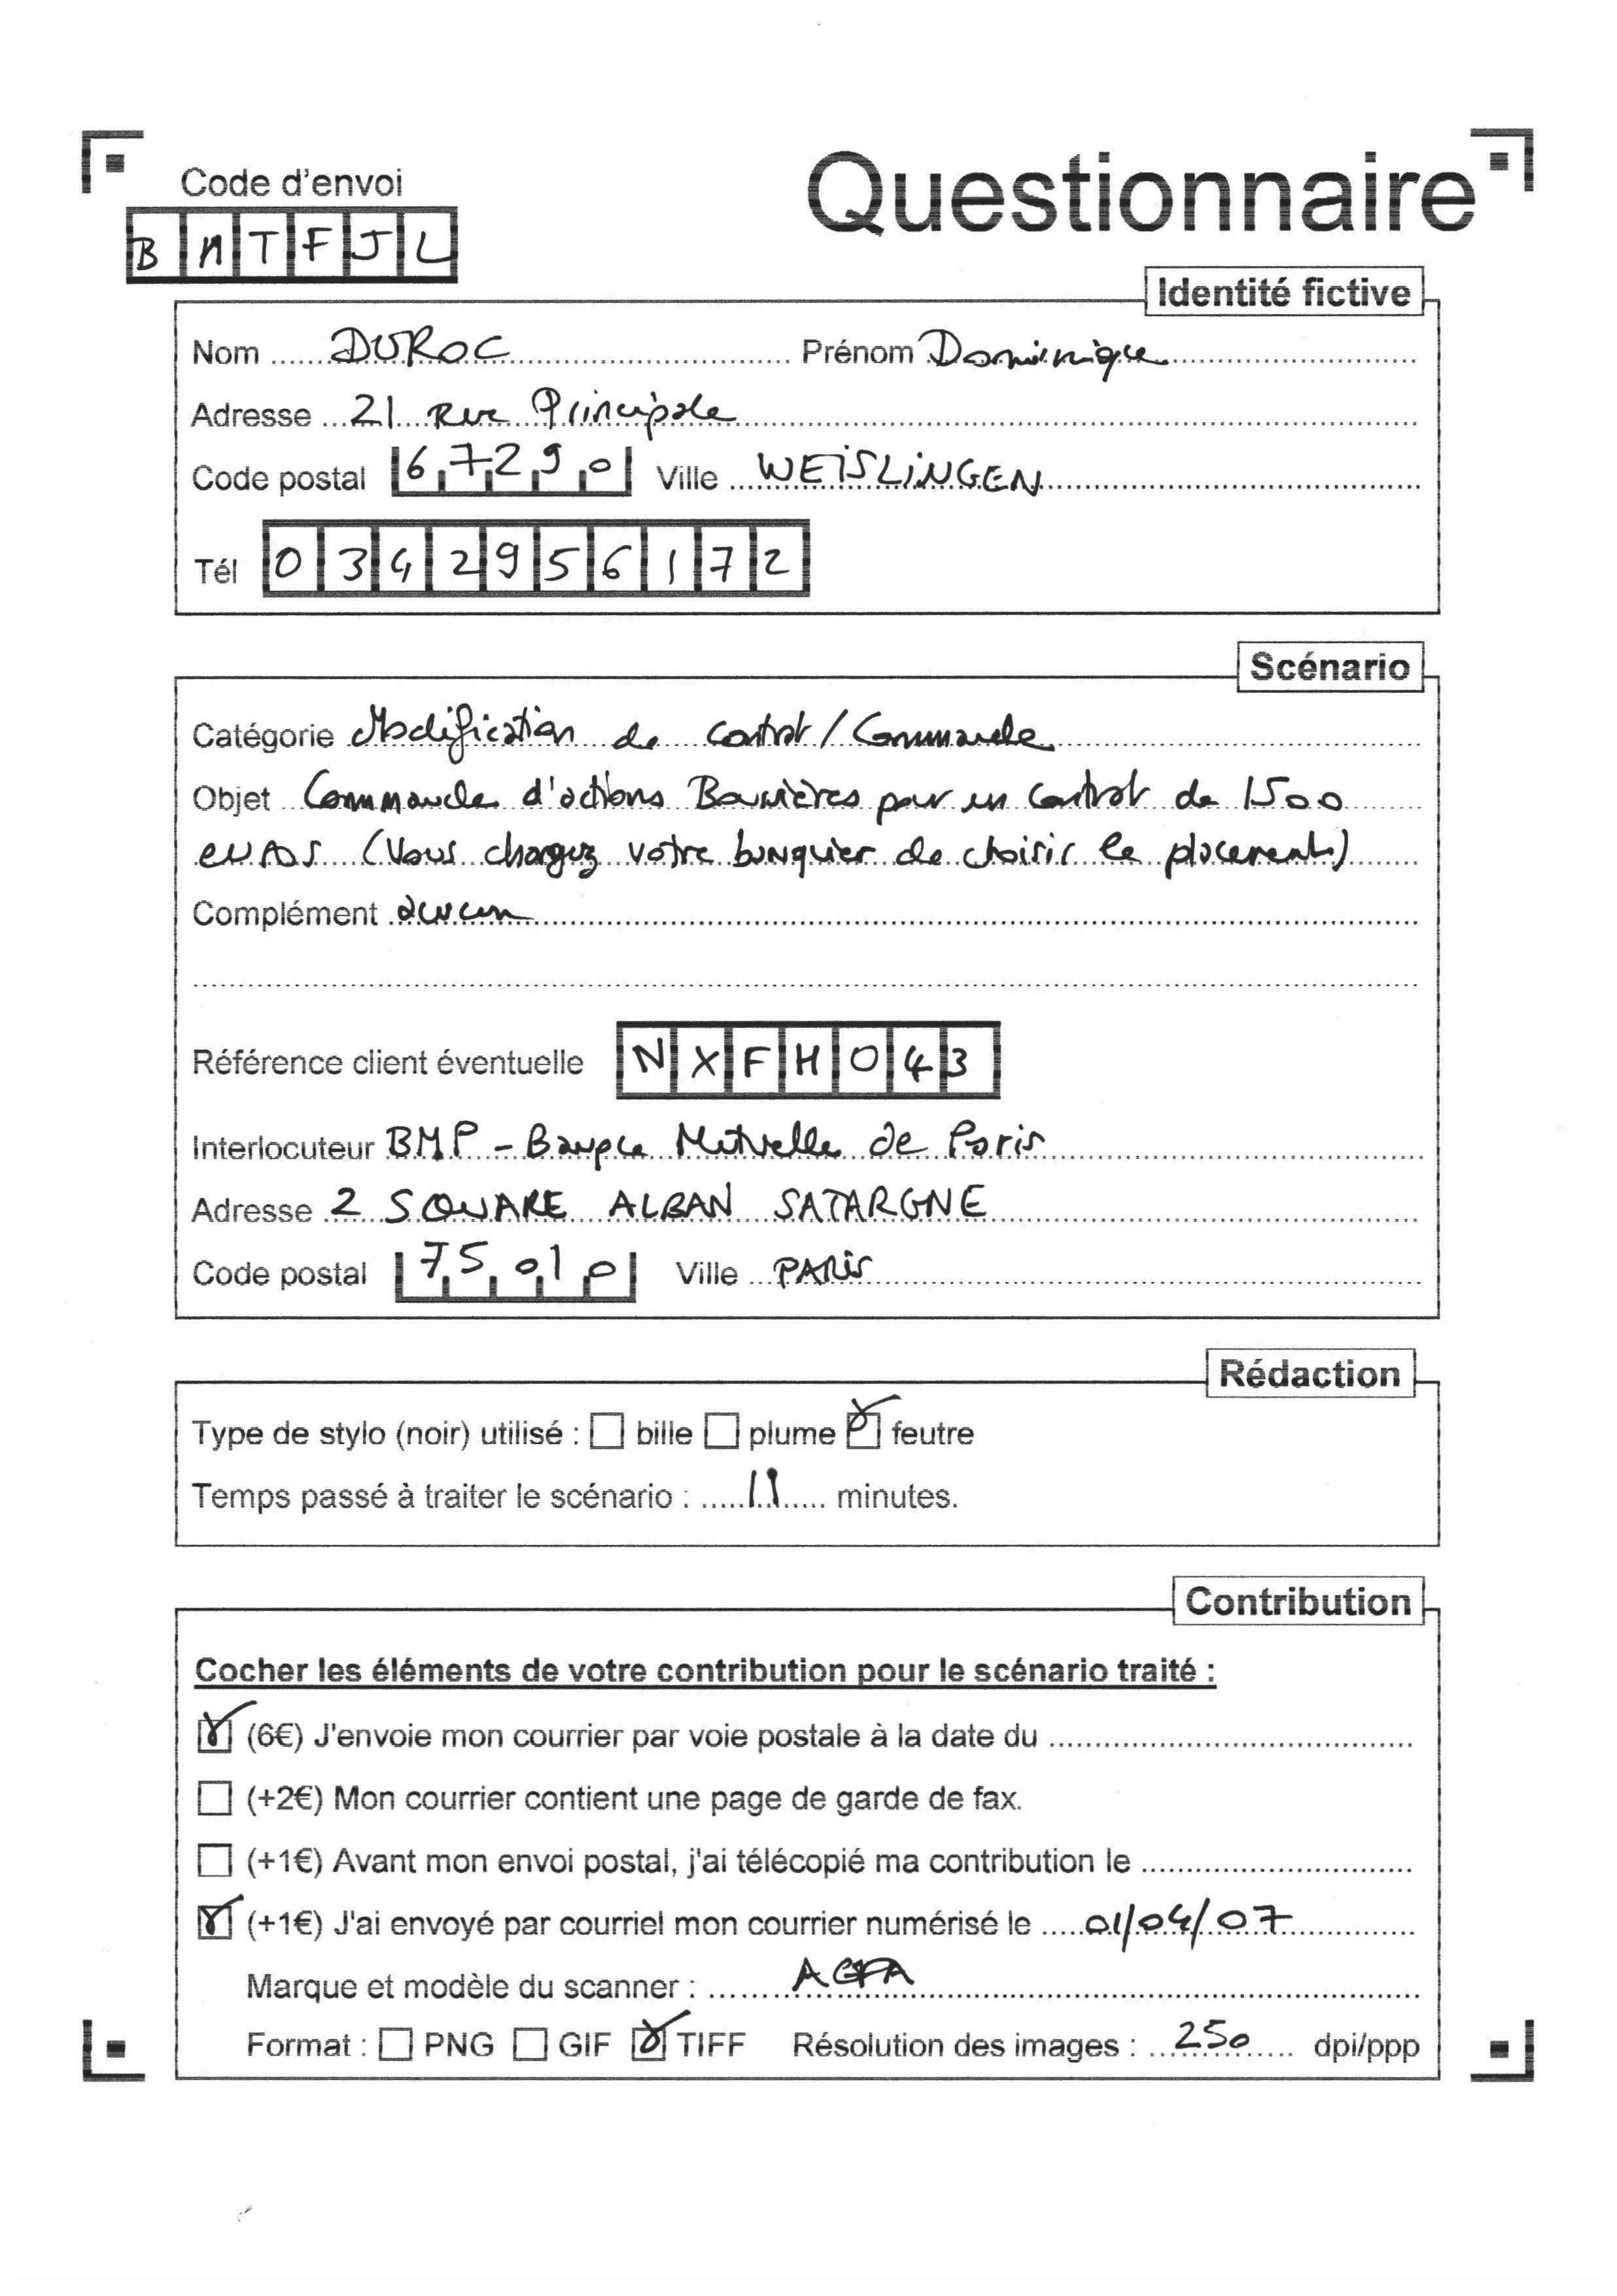 Code d'envoi
Questionnaire
B N T F J L
Identité fictive
Nom DUROC Prénom Dominique
Adresse 21 Rue Principale
Code postal 67290 Ville WEISLINGEN
Tél 0342956172
Scénario
Catégorie Modification de contrat / Commande
Objet Commande d'actions Boursières pour un contrat de 1500
euros (Vous chargez votre banquier de choisir le placement)
Complément aucun
Référence client éventuelle NXFH043
Interlocuteur BMP - Banque Mutuelle de Paris
Adresse 2 SQUARE ALBAN SATARGNE
Code postal 75010 Ville PARIS
Rédaction
Type de stylo (noir) utilisé : bille plume feutre
Temps passé à traiter le scénario : 11 minutes.
Contribution
Cocher les éléments de votre contribution pour le scénario traité :
(6€) J'envoie mon courrier par voie postale à la date du
(+2€) Mon courrier contient une page de garde de fax.
(+1€) Avant mon envoi postal, j'ai télécopié ma contribution le
(+1€) J'ai envoyé par courriel mon courrier numérisé le 01/04/07
Marque et modèle du scanner : AGFA
Format : PNG GIF TIFF Résolution des images : 250 dpi/ppp